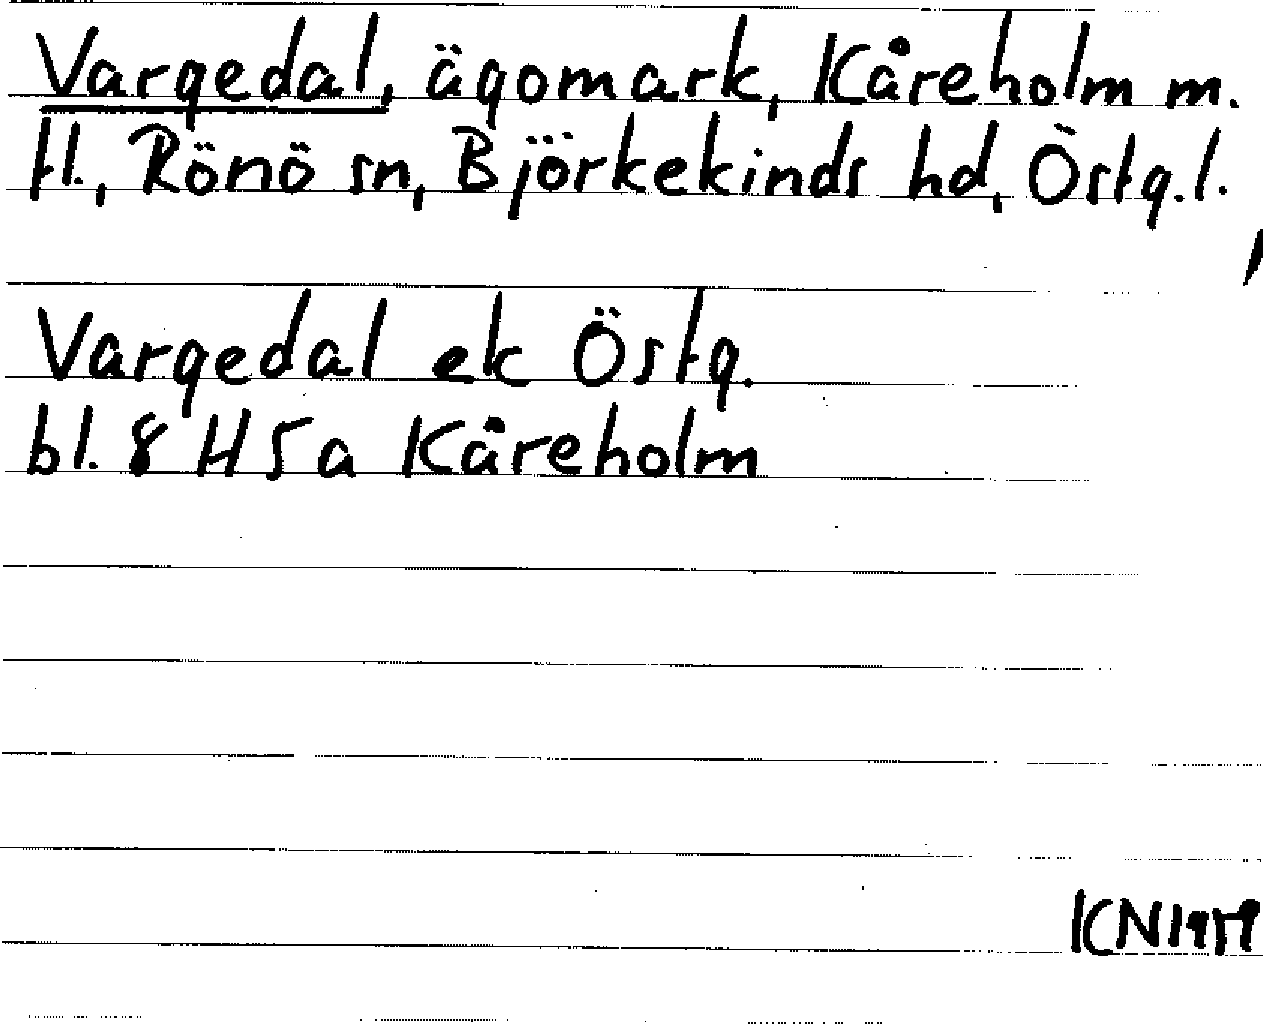 Vargedal, ägomark, Kåreholm m.
fl., Rönö sn, Björkekinds hd, Östg.l.
Vargedal ek Östg.
bl. 8 H 5a Kåreholm